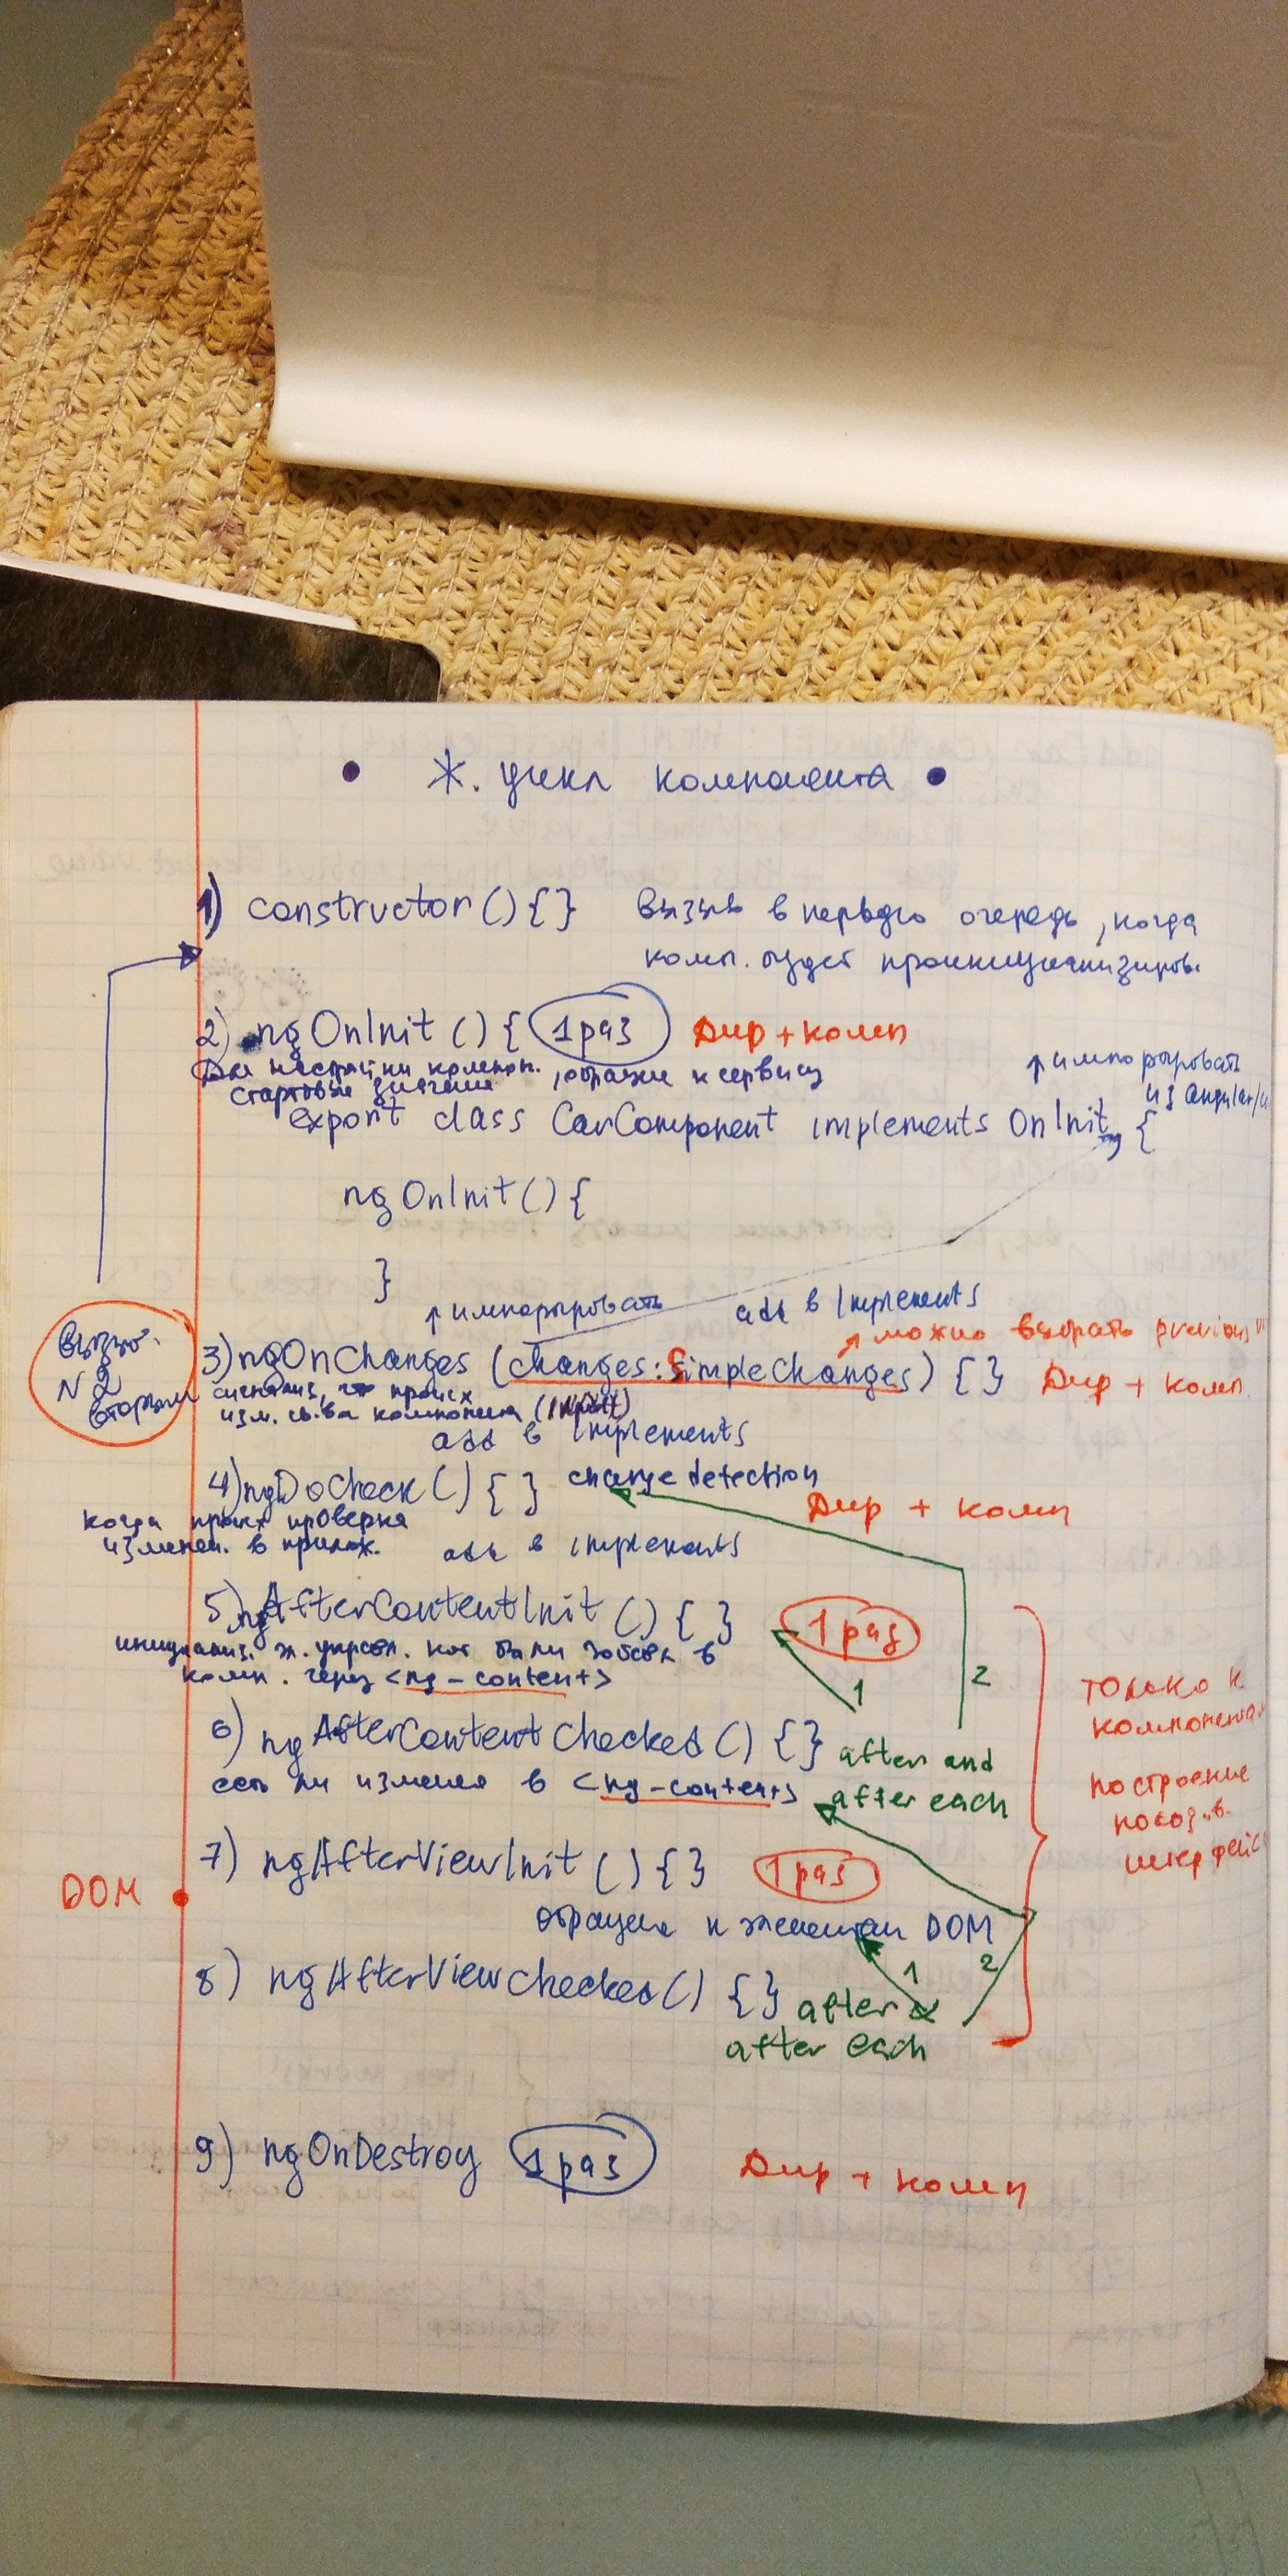 • Ж. цикл компонента •
1) constructor () { } Вызыв в первую очередь, когда
комп. будет проинициализиров.
2) ngOnInit () { 1 раз Дир + комп
Для настройки компон. , обращие к сервису
стартовые значения
↑ импортировать
из angular/
export class CarComponent implements OnInit {
ngOnInit () {
}
↑ импортировать add в Implements
можно выбрать previous
Вызыв.
N 2
вторым
3) ngOnChanges (changes: SimpleChanges) { } Дир + комп.
сигнализ, что происх
изм. св-ва компонента (Input)
add в Implements
4) ngDoCheck () { } change detection
Дир + комп
когда происх проверка
изменен. в прилож. add в implements
5) ngAfterContentInit () { } 1 раз
инициализ. эл. управл. кот были добавл в
комп. через <ng-content>
1 2
только к
компонентам
построение
6) ngAfterContentChecked () { } after and
after each
есть ли изменея в <ng-content>
7) ngAfterViewInit () { } 1 раз
DOM
обращение к элементам DOM
1 2
8) ngAfterViewChecked () { } after &
after each
9) ngOnDestroy 1 раз Дир + комп